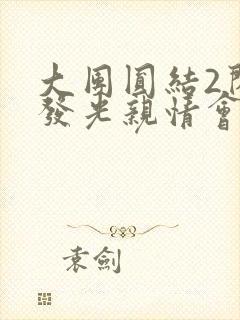 大團圓結2
發光親情會
袁劍